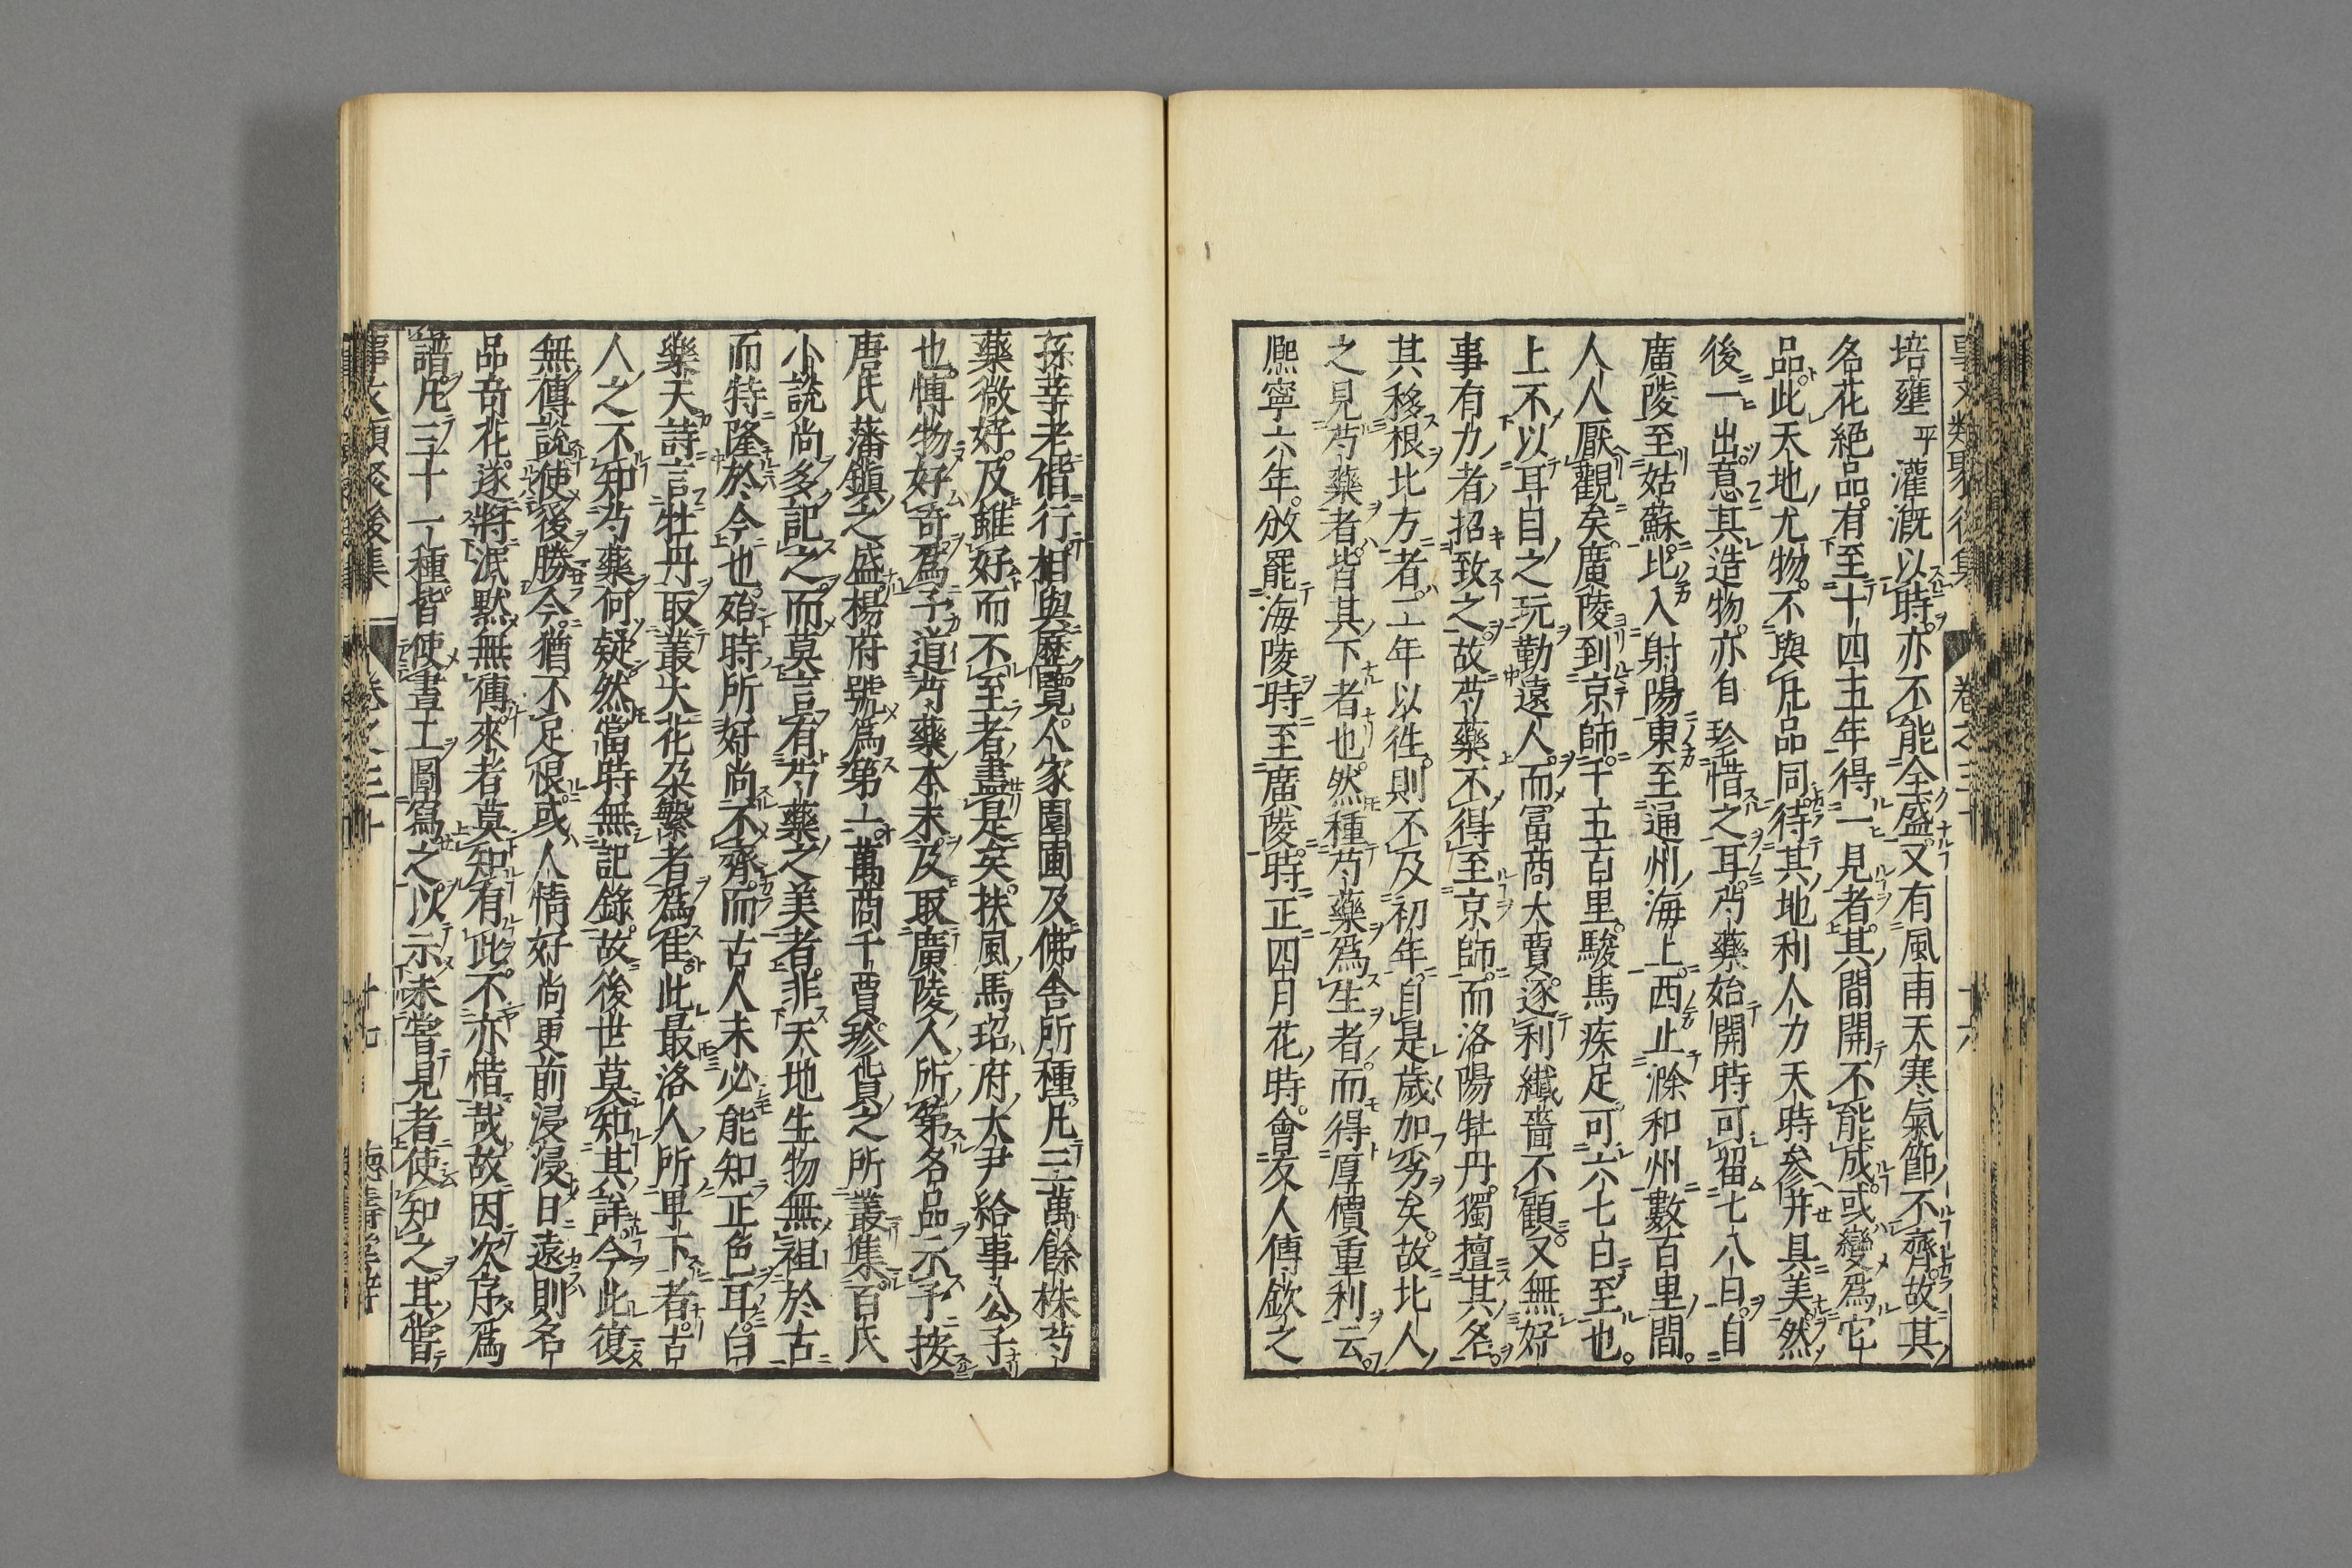 培壅平灌漑以時亦不能全盛又有風雨天寒氣節不齊故其
名花絕品有至十四五年得一見者其間開不能成或變爲它
品此天地尤物不與凡品同待其地利人力天時参并具美然
後一出意其造物亦自珍惜之耳芍藥始開時可留七八日自
廣陵至姑蘇北入射陽東至通州海上西止滁和州數百里間
人人厭觀矣廣陵到京師千五百里駿馬疾足可六七日至也
上不以耳目之玩勤遠人而富商大賈逐利纖嗇不顧又無好
事有力者招致之故芍藥不得至京師而洛陽牡丹獨擅其名
其移根北方者二年以徃則不及初年自是歲加劣矣故北人
之見芍藥者皆其下者也然種芍藥爲生者而得厚價重利云
熈寧六年攽罷海陵時至廣陵時正四月花時會友人傅欽之
孫莘老偕行相與歷覽人家園圃及佛舍所種凡三萬餘株芍
藥微好及雖好而不至者盡是矣扶風馬玿府大尹給事公子
也慱物好奇爲予道芍藥本末及取廣陵人所第名品示予按
唐氏藩鎮之盛楊府號爲第一萬商千賈珍貨之所叢集百氏
小說尚多記之而莫言有芍藥之美者非天地生物無祖於古
而特隆於今也殆時所好尚不齊而古人未必能知正色耳白
樂天詩言牡丹取叢大花朶繁者爲佳此最洛人所卑下者古
人之不知芍藥何疑然當時無記錄故後世莫知其詳今此復
無傳說使後勝今猶不足恨或人情好尚更前浸浸日遠則名
品奇花遂將泯黙無傳來者莫知有此不亦惜哉故因次序爲
譜凡三十一種皆使畫工圖寫之以示未嘗見者使知之其嘗
事文類聚後集 卷之三十 十七